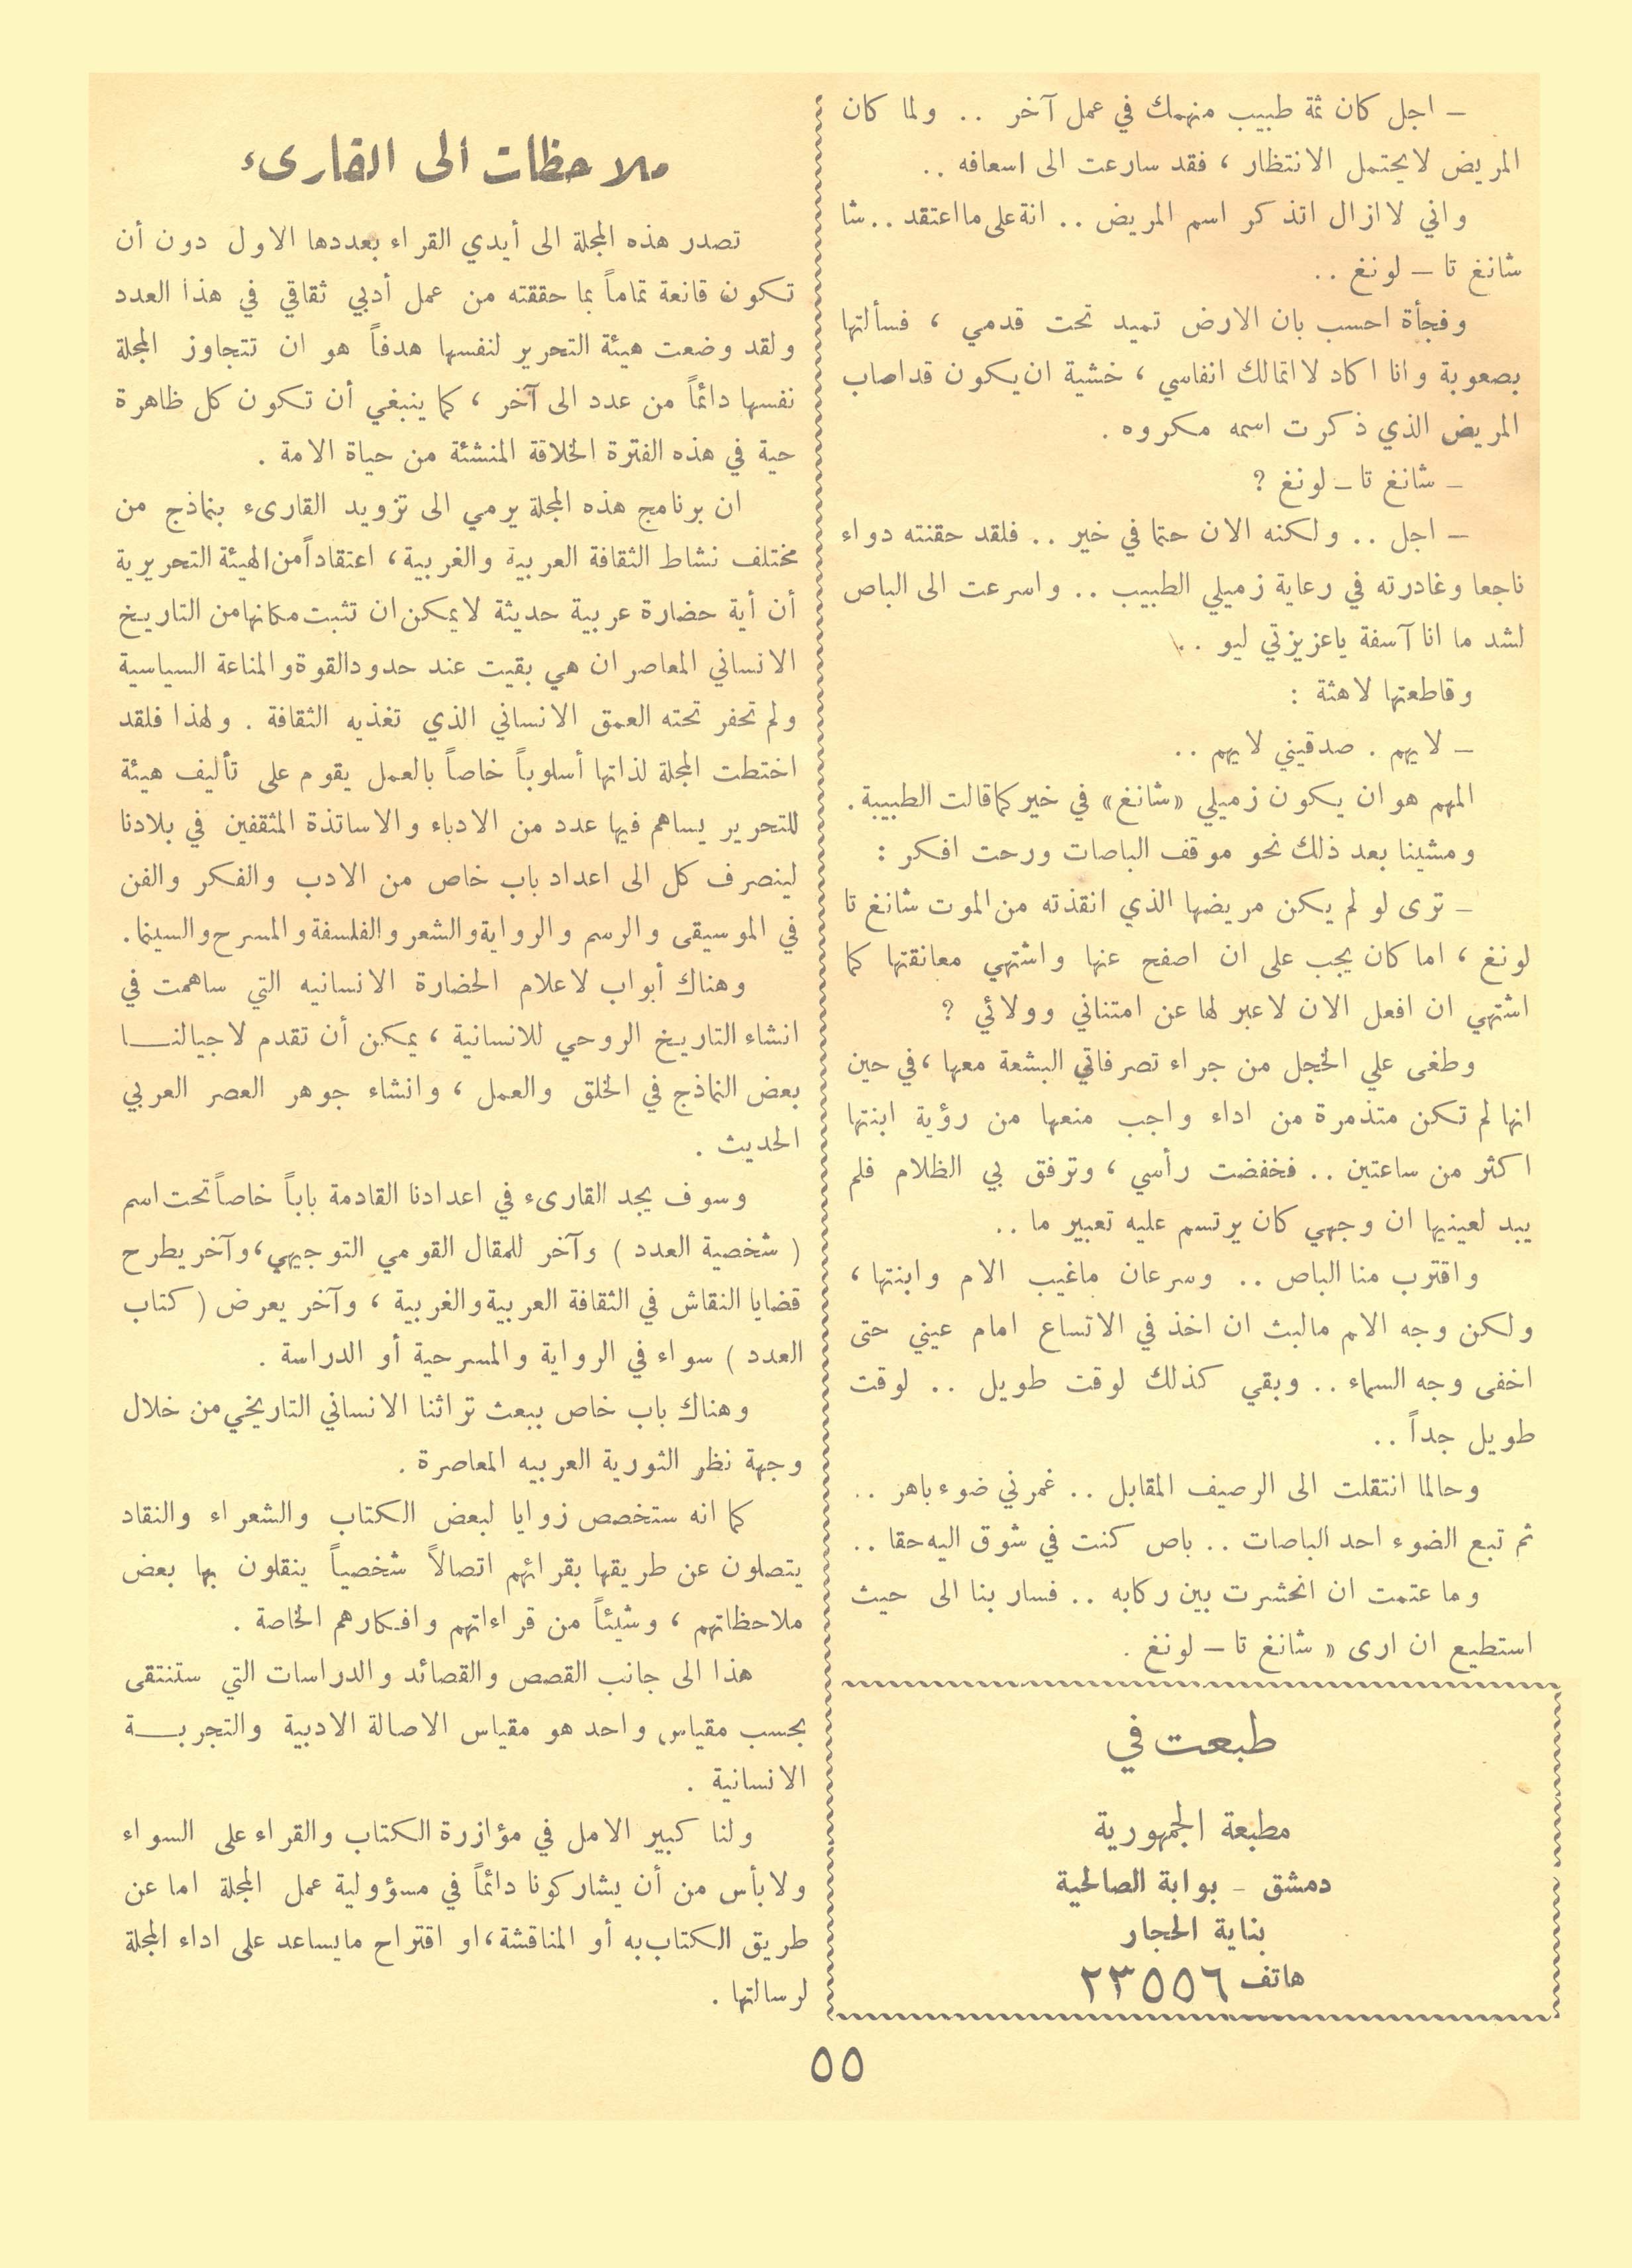 – اجل كان ثمة طبيب منهمك في عمل آخر .. ولما كان
المريض لايحتمل الانتظار ، فقد سارعت الى اسعافه ..
واني لاازال اتذكر اسم المريض .. انة على مااعتقد .. شا
شانغ تا – لونغ ..
وفجأة احسب بان الارض تميد تحت قدمي ، فسألتها
بصعوبة وانا اكاد لااتمالك انفاسي ، خشية ان يكون قد اصاب
المريض الذي ذكرت اسمه مكروه .
– شانغ تا – لونغ ؟
– اجل .. ولكنه الان حتما في خير .. فلقد حقنته دواء
ناجعا وغادرته في رعاية زميلي الطبيب .. واسرعت الى الباص
لشد ما انا آسفة ياعزيزتي ليو ..
وقاطعتها لاهثة :
– لايهم . صدقيني لايهم ..
المهم هو ان يكون زميلي «شانغ» في خير كما قالت الطبيبة .
ومشينا بعد ذلك نحو موقف الباصات ورحت افكر :
– ترى لو لم يكن مريضها الذي انقذته من الموت شانغ تا
لونغ ، اما كان يجب على ان اصفح عنها واشتهي معانقتها كما
اشتهي ان افعل الان لاعبر لها عن امتناني وولائي ؟
وطغى علي الخجل من جراء تصرفاتي البشعة معها ، في حين
انها لم تكن متذمرة من اداء واجب منعها من رؤية ابنتها
اكثر من ساعتين .. فخفضت رأسي ، وترفق بي الظلام فلم
يبد لعينيها ان وجهي كان يرتسم عليه تعبير ما ..
واقترب منا الباص .. وسرعان ماغيب الام وابنتها ،
ولكن وجه الام مالبث ان اخذ في الاتساع امام عيني حتى
اخفى وجه السماء .. وبقي كذلك لوقت طويل .. لوقت
طويل جداً ..
وحالما انتقلت الى الرصيف المقابل .. غمرني ضوء باهر ..
ثم تبع الضوء احد الباصات .. باص كنت في شوق اليه حقا ..
وما عتمت ان انحشرت بين ركابه .. فسار بنا الى حيث
استطيع ان ارى « شانغ تا – لونغ .
طبعت في
مطبعة الجمهورية
دمشق – بوابة الصالحية
بناية الحجار
هاتف ٢٣٥٥٦
ملاحظات الى القارىء
تصدر هذه المجلة الى أيدي القراء بعددها الاول دون أن
تكون قانعة تماماً بما حققته من عمل أدبي ثقاقي في هذا العدد
ولقد وضعت هيئة التحرير لنفسها هدفاً هو ان تتجاوز المجلة
نفسها دائماً من عدد الى آخر ، كما ينبغي أن تكون كل ظاهرة
حية في هذه الفترة الخلاقة المنشئة من حياة الامة .
ان برنامج هذه المجلة يرمي الى تزويد القارىء بنماذج من
مختلف نشاط الثقافة العربية والغربية ، اعتقاداً من الهيئة التحريرية
أن أية حضارة عربية حديثة لايمكن ان تثبت مكانها من التاريخ
الانساني المعاصر ان هي بقيت عند حدود القوة والمناعة السياسية
ولم تحفر تحته العمق الانساني الذي تغذيه الثقافة . ولهذا فلقد
اختطت المجلة لذاتها أسلوباً خاصاً بالعمل يقوم على تأليف هيئة
للتحرير يساهم فيها عدد من الادباء والاساتذة المثقفين في بلادنا
لينصرف كل الى اعداد باب خاص من الادب والفكر والفن
في الموسيقى والرسم والرواية والشعر والفلسفة والمسرح والسينما .
وهناك أبواب لاعلام الحضارة الانسانيه التي ساهمت في
انشاء التاريخ الروحي للانسانية ، يمكن أن تقدم لاجيالنا
بعض النماذج في الخلق والعمل ، وانشاء جوهر العصر العربي
الحديث .
وسوف يجد القارىء في اعدادنا القادمة باباً خاصاً تحت اسم
( شخصية العدد ) وآخر للمقال القومي التوجيهي ، وآخر يطرح
قضايا النقاش في الثقافة العربية والغربية ، وآخر يعرض ( كتاب
العدد ) سواء في الرواية والمسرحية أو الدراسة .
وهناك باب خاص ببعث تراثنا الانساني التاريخي من خلال
وجهة نظر الثورية العربيه المعاصرة .
كما انه ستخصص زوايا لبعض الكتاب والشعراء والنقاد
يتصلون عن طريقها بقرائهم اتصالاً شخصياً ينقلون بها بعض
ملاحظاتهم ، وشيئاً من قراءاتهم وافكارهم الخاصة .
هذا الى جانب القصص والقصائد والدراسات التي ستنتقى
بحسب مقياس واحد هو مقياس الاصالة الادبية والتجربة
الانسانية .
ولنا كبير الامل في مؤازرة الكتاب والقراء على السواء
ولابأس من أن يشاركونا دائماً في مسؤولية عمل المجلة اما عن
طريق الكتاب به أو المناقشة ، او اقتراح مايساعد على اداء المجلة
لرسالتها .
٥٥